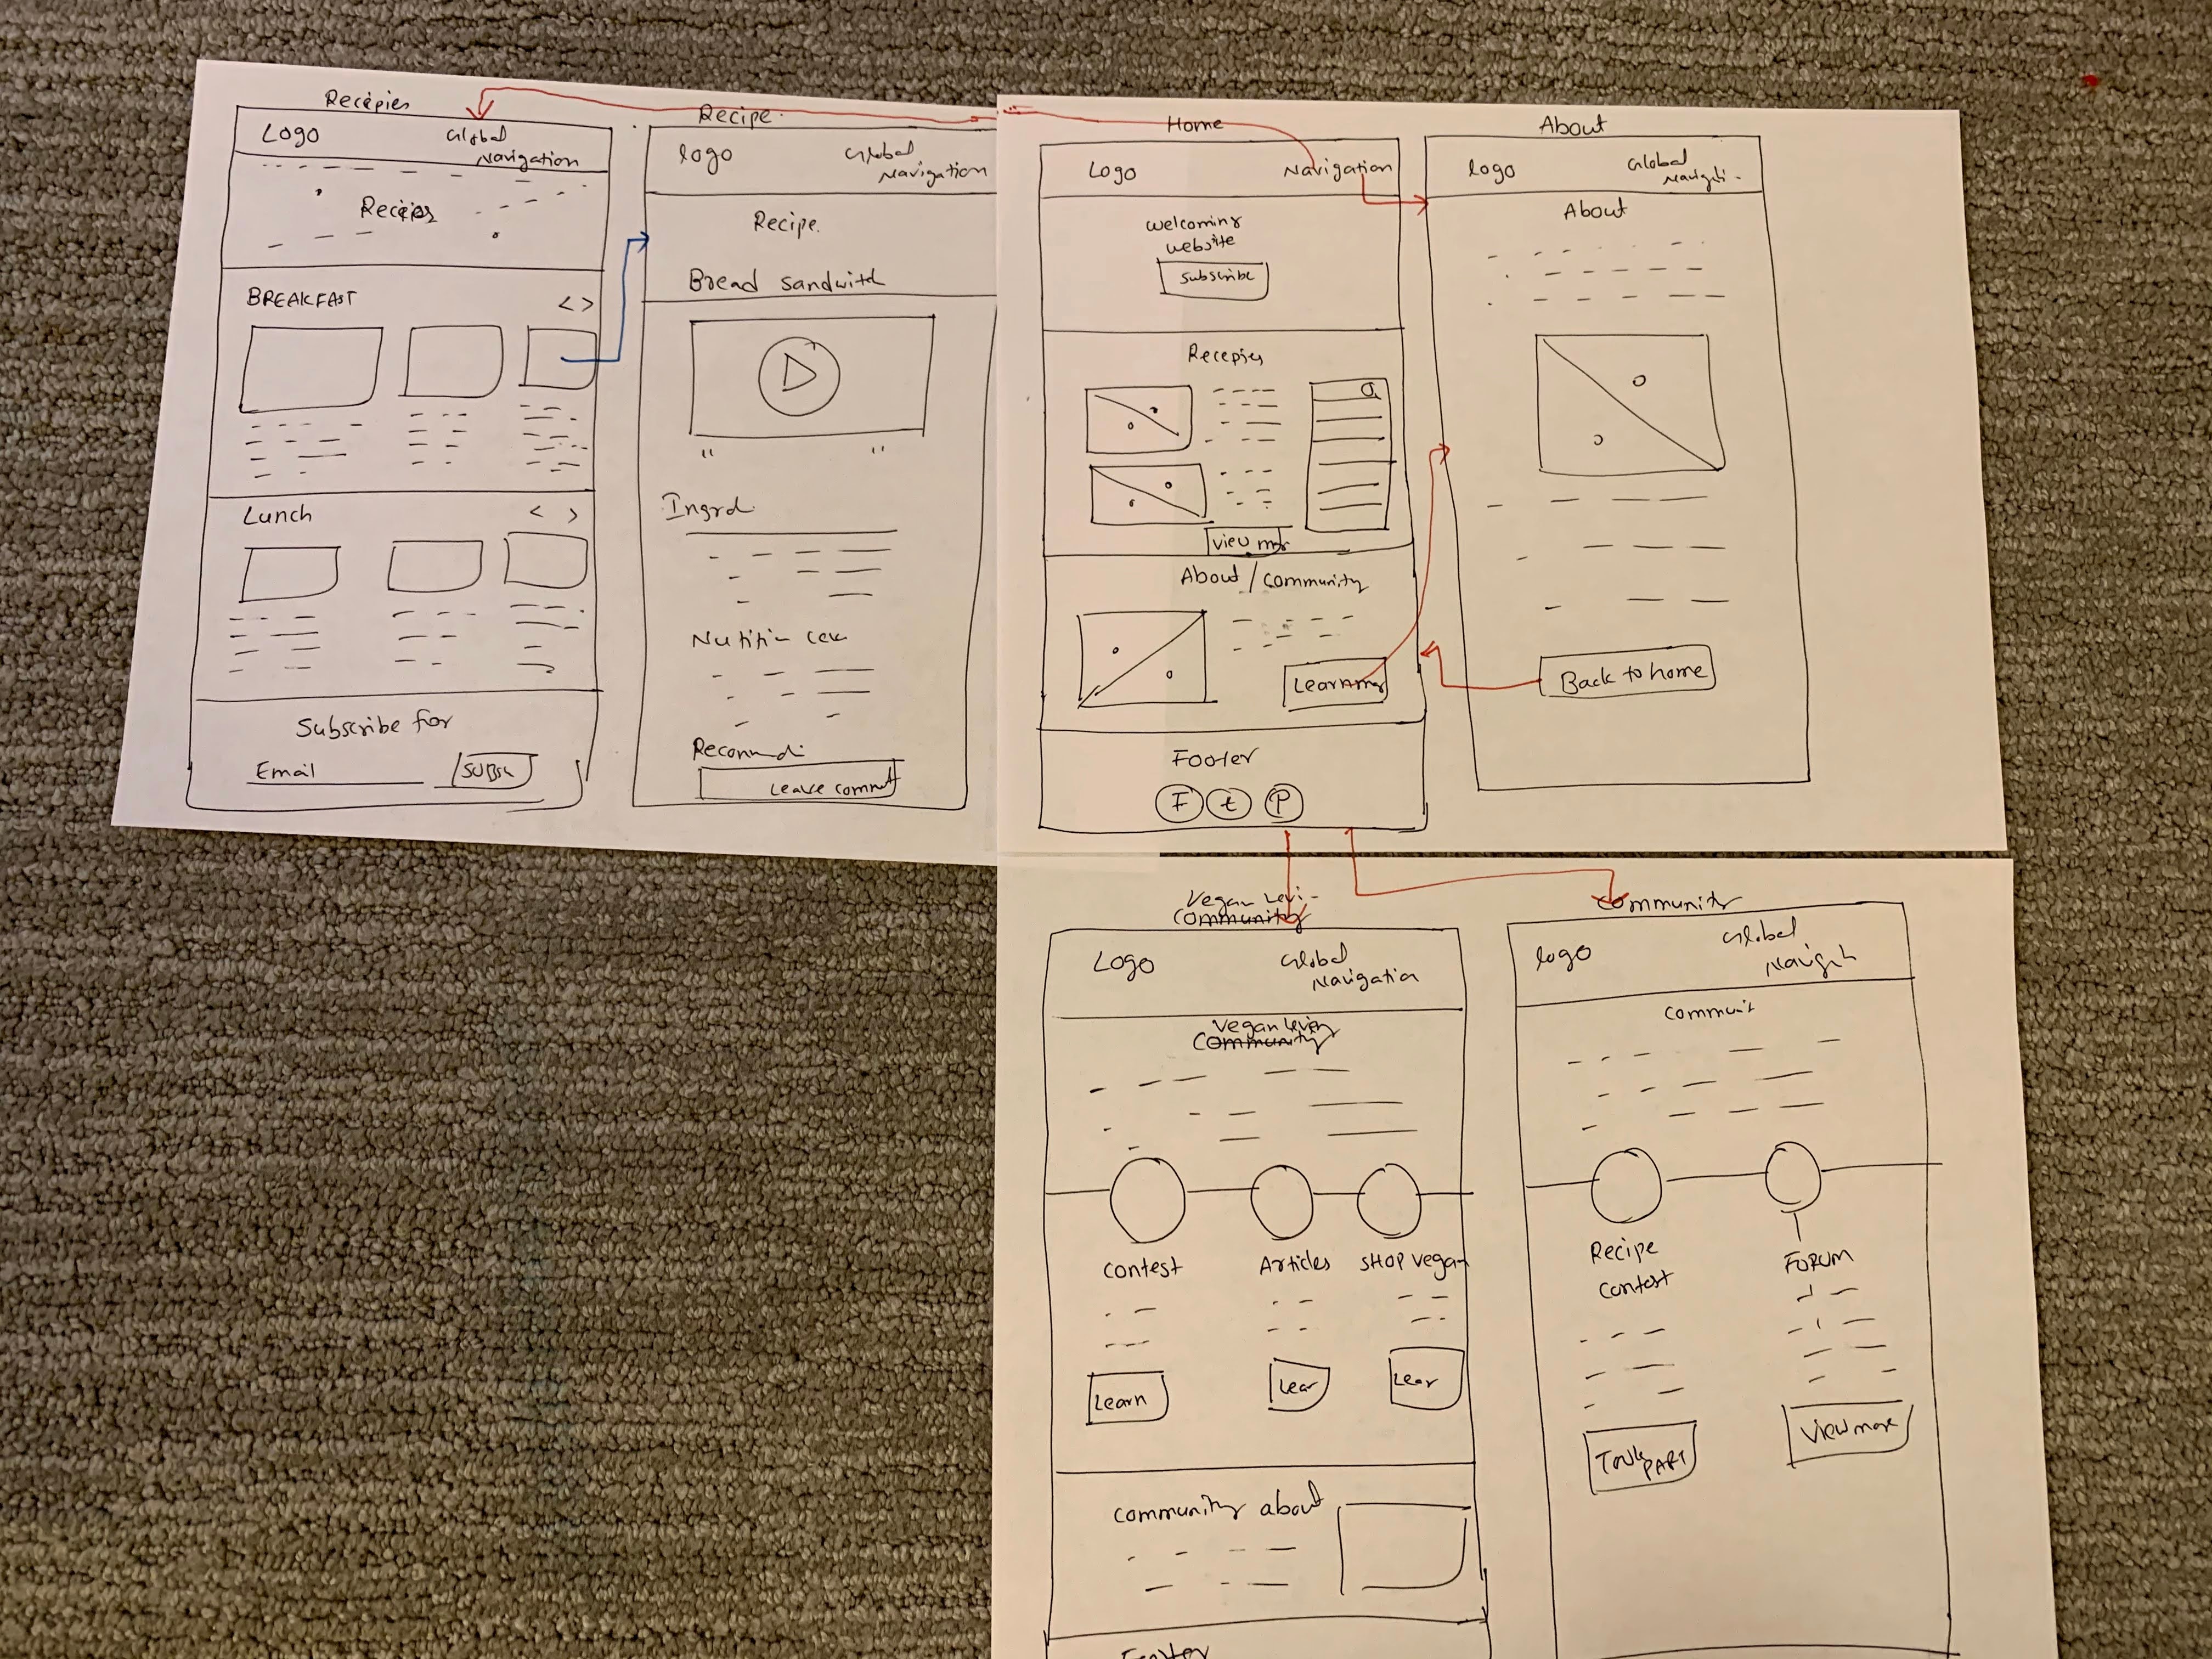 Recepies
Logo
Global
Navigation
Recepies
BREAKFAST
< >
Lunch
< >
Subscribe for
Email
SUBSC
Recipe
logo
Global
Navigation
Recipe.
Bread sandwitch
Ingrd.
Recommd:
Leave commt
Home
Logo
Navigation
welcoming
website
Subscribe
Recepies
view mor
About / community
Learn mor
Footer
F t P
About
logo
Global
Navigati -
About
Back to home
Vegan Levi -
Community
Logo
Global
Navigation
Vegan Leving
Community
Contest
Articles
SHOP Vegan
Learn
Lear
Lear
Community about
Footer
Community
logo
Global
Navigat
Communit
Recipe
Contest
FORUM
PART
View more